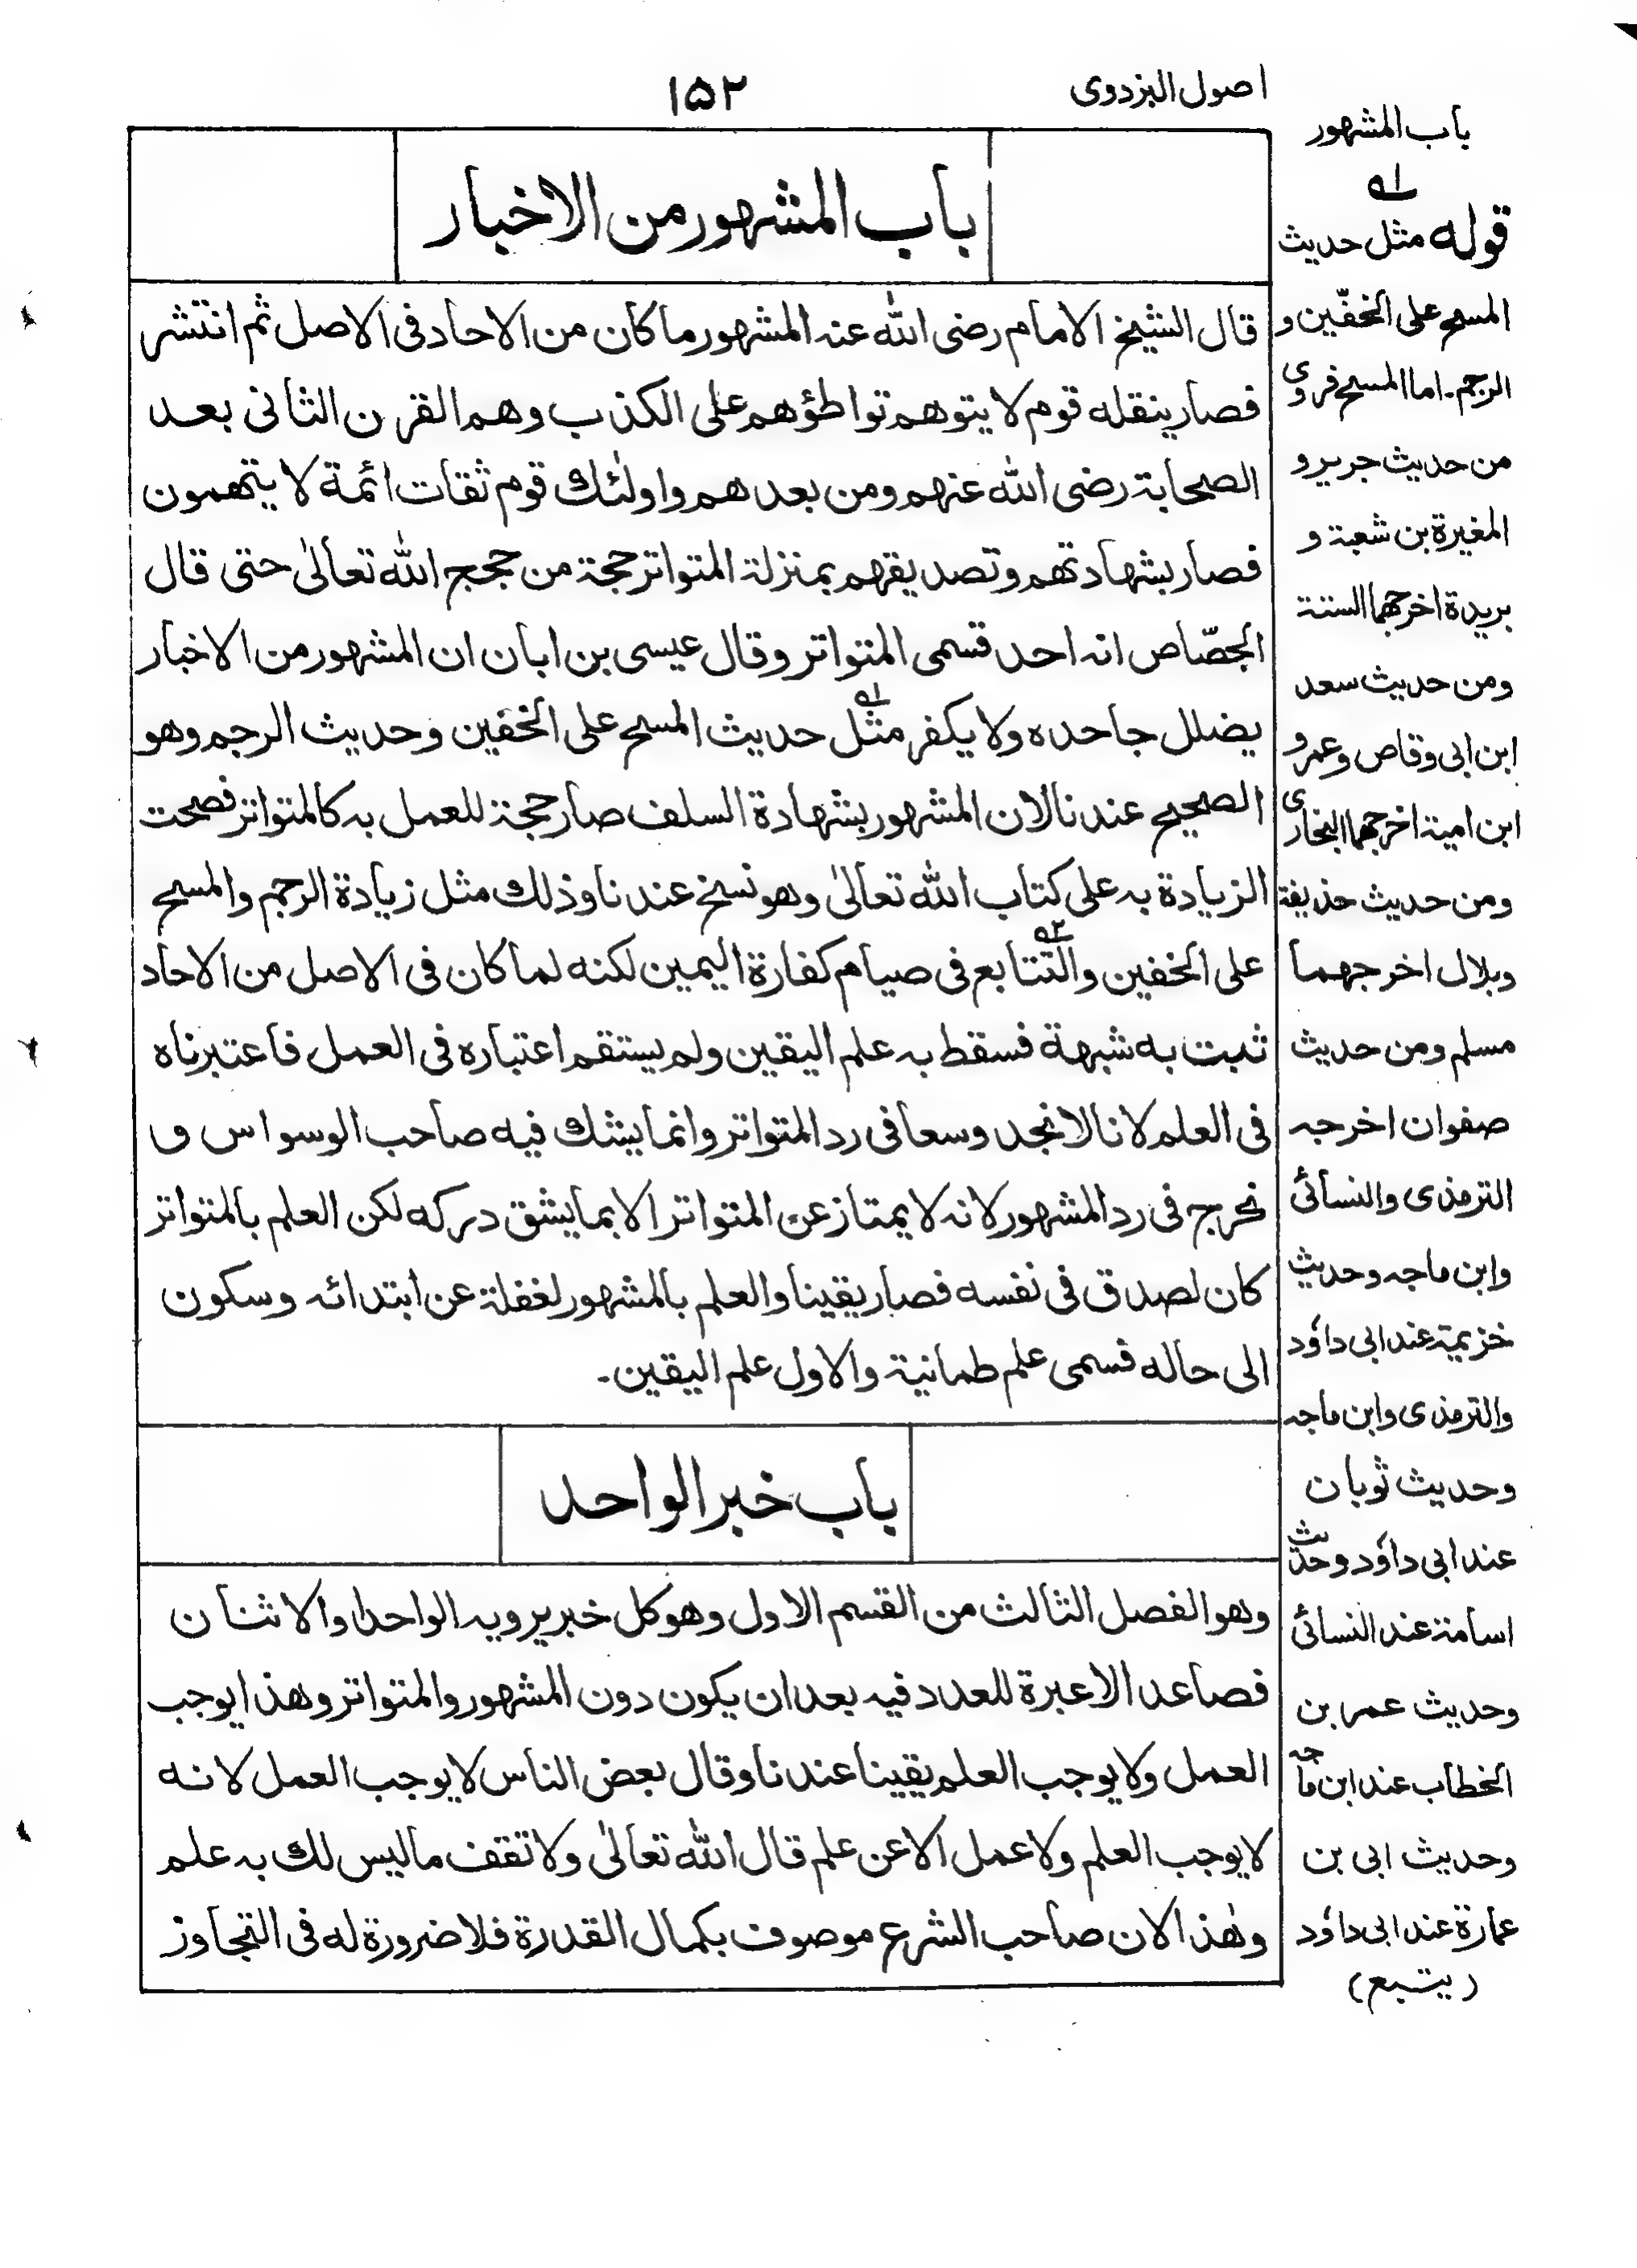 اصول البزدوی
۱۵۲
باب المشهور من الاخبار
قال الشيخ الامام رضى الله عنه المشهور ما كان من الاحاد فى الاصل ثم انتشر
فصار ينقله قوم لا يتوهم تواطؤهم على الكذب وهم القرن الثانى بعد
الصحابة رضى الله عنهم ومن بعدهم واولٰئك قوم ثقات ائمة لا يتهمون
فصار بشهادتهم وتصديقهم بمنزلة المتواتر حجة من حجج الله تعالىٰ حتى قال
الجصّاص انه احد قسمى المتواتر وقال عيسى بن ابان ان المشهور من الاخبار
يضلل جاحده ولا يكفر مثل ۱ حديث المسح على الخفين وحديث الرجم وهو
الصحيح عندنا لان المشهور بشهادة السلف صار حجة للعمل به كالمتواتر فصحت
الزيادة به على كتاب الله تعالىٰ وهو نسخ عندنا وذلك مثل زيادة الرجم والمسح
على الخفين والتتابع ۲ فى صيام كفارة اليمين لكنه لما كان فى الاصل من الاحاد
ثبت به شبهة فسقط به علم اليقين ولم يستقم اعتباره فى العمل فاعتبرناه
فى العلم لانا لا نجد وسعا فى رد المتواتر وانما يشك فيه صاحب الوسواس و
نحرج فى رد المشهور لانه لا يمتاز عن المتواتر الا بما يشق دركه لكن العلم بالمتواتر
كان لصدق فى نفسه فصار يقينا والعلم بالمشهور لغفلة عن ابتدائه وسكون
الى حاله فسمى علم طمانية والاول علم اليقين۔
باب خبر الواحد
وهو الفصل الثالث من القسم الاول وهو كل خبر يرويه الواحد او الاثنان
فصاعدا لا عبرة للعدد فيه بعد ان يكون دون المشهور والمتواتر وهذا يوجب
العمل ولا يوجب العلم يقينا عندنا وقال بعض الناس لا يوجب العمل لانه
لا يوجب العلم ولا عمل الا عن علم قال الله تعالىٰ ولا تقف ما ليس لك به علم
وهٰذا لان صاحب الشرع موصوف بكمال القدرة فلا ضرورة له فى التجاوز
باب المشهور
۱
قوله مثل حديث
المسح على الخفّين و
الرجم۔ اما المسح فروى
من حديث جرير و
المغيرة بن شعبة و
بريدة اخرجهما الستة
ومن حديث سعد
ابن ابى وقاص وعمرو
ابن امية اخرجهما البخارى
ومن حديث حذيفة
وبلال اخرجهما
مسلم ومن حديث
صفوان اخرجه
الترمذى والنسائى
وابن ماجه وحديث
خزيمة عند ابى داؤد
والترمذى وابن ماجه
وحديث ثوبان
عند ابى داؤد وحديث
اسامة عند النسائى
وحديث عمر بن
الخطاب عند ابن ماجه
وحديث ابى بن
عمارة عند ابى داؤد
(يتبع)